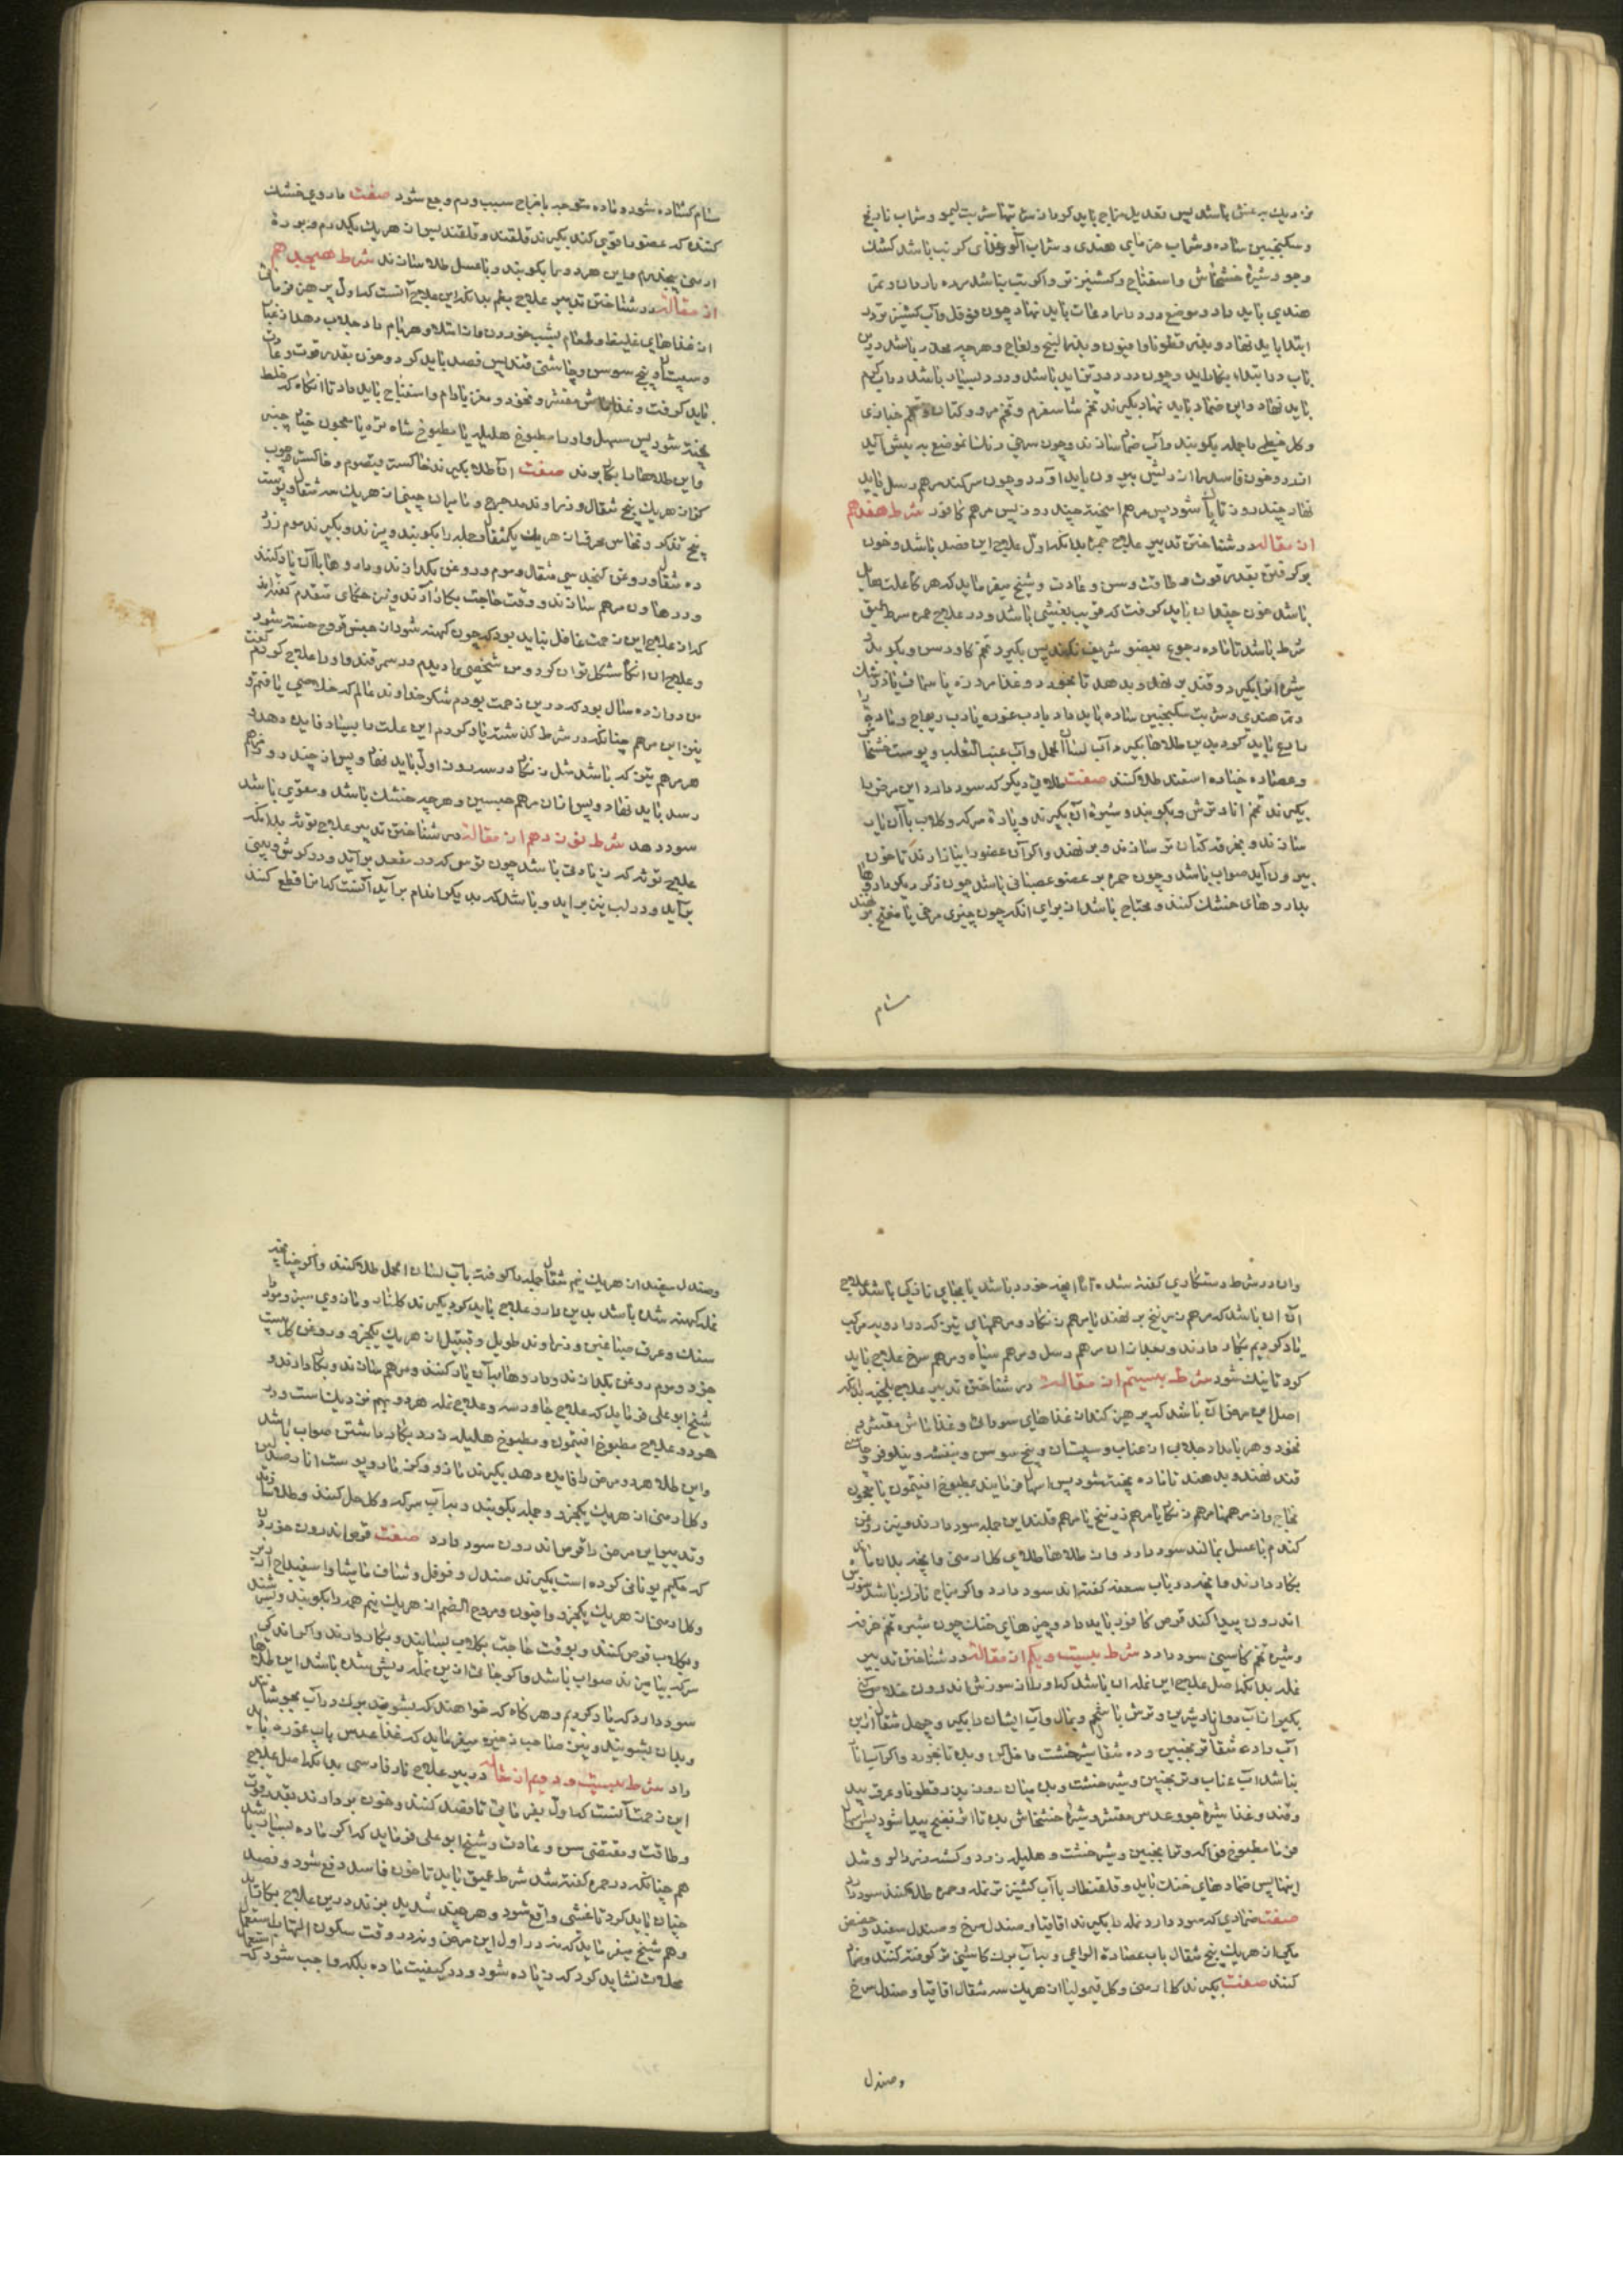 نزدیک به عنق باشد پس تعدیل مزاج باید کردن شربتهاش شربت لیمو و شراب نارنج
و سکنجبین ساده و شراب خرمای هندی و شراب آلو و غذای که ترتیب باشد کشک
و جو و شیره خشخاش و اسفناج و کشنیز تر و اگر تب نباشد مزوره باردان و تمر
هندی باید داد و موضع درد را رادعات باید نهاد چون فوفل و آب کشنیز تر در
ابتدا باید نهاد و بذر قطونا و افیون و بذر البنج و لفاح و هرچه مخدر باشد درین
باب در ابتدا بکار آید و چون درد در تزاید باشد و درد بسیار باشد در آب گرم
باید نهاد و این ضماد باید نهاد بگیرند تخم شاسفرم و تخم مرو و کتان و تخم خبازی
و گل خطمی را جمله بکوبند و آب ضماد سازند و چون سرخی رنگ آن موضع به بنفش آید
اندرو خون فاسد را از ریش بیرون باید آورد و چون سر کند مرهم رسل باید
نهاد چند روز تا پاک شود پس مرهم اسخنه چند روز پس مرهم کافور شرط هفدهم
از مقاله در شناختن تدبیر علاج جمره بدانکه اول علاج این فصد باشد و خون
برگرفتن بقدر قوت و طاقت و سن و عادت و شیخ میفرماید که هرگاه علت هایل
باشد خون چندان باید گرفت که قریب بغشی باشد و در علاج جمره شرط عمیق
شرط باشد تا ماده رجوع بعضو شریف نکند پس بگیرد تخم کاو درس و بکوبد
شیره آنرا بگیرد و قند بر نهد و بدهد تا بخورد و غذا مزوره با سماق یا زرشک
و تمر هندی و شربت سکنجبین ساده باید داد یا رب غوره یا رب ریواج و ماده را
رادع باید کرد بدین طلاها بگیرد آب لسان الحمل و آب عنب الثعلب و پوست خشخاش
و عصاره خیار و اسفند طلا کنند صفت طلای دیگر که سود دارد این مرض را
بگیرند تخم انار ترش و بکوبند و شیره آن بگیرند و پاره سرکه و گلاب با آن یار
سازند و بخرقه کتان تر سازند و بر نهند و اگر آن عضو را بیازارند تا خون
بیرون آید صواب باشد و چون جمره بر عضو عصبانی باشد چون ذکر دیگر داروها
بداروهای خشک کنند و محتاج باشد از برای آنکه چون چیزی مرخی یا مفتح بر نهند
مسام
مسام گشاده شود و ماده متوجه بآنجا سبب ورم و جع شود صفت داروی خشک
کننده که عضو را قوی کند بگیرند قلقند و قلقندیس از هر یک یکدرم و بوره
ارمنی پنجدرم و این هر دو را بکوبند و با عسل طلا سازند شرط هیجدهم
از مقاله در شناختن تدبیر علاج بلغم بدانکه این علاج آنست که اول پرهیز فرمائی
از غذاهای غلیظ و طعام بشب خوردن و از امتلا و هر بام داد جلاب دهد از عناب
و سپستان و بیخ سوس و چاشنی قند پس فصد باید کرد و خون بقدر قوت و عادت
باید گرفت و غذا ماش مقشر و نخود و مغز بادام و اسفناج باید داد تا آنگاه که خلط
پخته شود پس مسهل او را مطبوخ هلیله یا مطبوخ شاه تره یا معجون خیار چنبر
و این طلاها را بکار برند صفت آن طلا بگیرند خاکستر قیصوم و خاکستر چوب
کز از هر یک پنج مثقال و زراوند مدحرج و مامیران چینی از هر یک سه مثقال و پوست
بیخ کبر و نحاس محرق از هر یک یکمثقال و جمله را بکوبند و ببیزند و بگیرند موم زرد
ده مثقال و روغن کنجد سی مثقال و موم در روغن بگدازند و داروها با آن یاد کنند
و در هاون مرهم سازند و وقت حاجت بکار آرند و نیز حکمای متقدم گفته‌اند
که از علاج این زحمت غافل نباید بود که چون کهنه شود از جنس قروح خبیثه شود
و علاج آن آنگاه مشکل توان کرد و من شخصی را دیدم در سمرقند و او را علاج کردم گفت
من دوازده سال بود که درین زحمت بودم شکر خداوند عالم که خلاصی یافتم و
نیز این مرهم چنانکه در شرط گذشته یاد کردم این علت را بسیار فایده دهد و
هر مرهم تیز که باشد مثل زنگار در سه روز اول باید نهاد و پس از چند روز مرهم
رسل باید نهاد و پس از آن مرهم حبسین و هرچه خشک باشد و مقوی باشد
سود دهد شرط نوزدهم از مقاله در شناختن تدبیر علاج توثه بدانکه
علاج توثه که زیادتی باشد چون توس که در مقعد برآید و در گوش و بینی
برآید و در لب نیز برآید و باشد که بدیگر اندام برآید آنست که آنرا قطع کنند
و آن در شرط دستکاری گفته شد اما آنچه خورد باشد یا بجای نازکی باشد علاج
آن آن باشد که مرهم زرنیخ بر نهند یا مرهم زنگار و مرهمهای تیز که در ادویه مرکب
یاد کردیم بکار دارند و بعد از آن مرهم رسل و مرهم سیاه و مرهم سرخ علاج باید
کرد تا نیک شود شرط بیستم از مقاله در شناختن تدبیر علاج بلخیه بدانکه
اصل این مرض آن باشد که پرهیز کند از غذاهای سودائی و غذا ماش مقشر و
نخود و هر بامداد جلاب از عناب و سپستان و بیخ سوس و بنفشه و نیلوفر و چاشنی
قند نهند و بدهند تا ماده پخته شود پس اسهال فرمایند بمطبوخ افتیمون یا معجون
نجاح و از مرهمها مرهم زنگار یا مرهم زرنیخ یا مرهم قلند این جمله سود دارند و نیز روغن
گندم با عسل بمالند سود دارد و از طلاها طلای گل ارمنی و آنچه بدان ماند
بکار دارند و آنچه در باب سعفه گفته‌اند سود دارد و اگر مزاج نازک باشد سوزش
اندرون پیدا کند قرص کافور باید داد و چیزهای خنک چون شیره تخم خرفه
و شیره تخم کاسنی سود دارد شرط بیست و یکم از مقاله در شناختن تدبیر
نمله بدانکه اصل علاج این نمله آن باشد که او را از سوزش اندرون خلاص کنی
بگیر از آب دو انار شیرین و ترش با شحم و بمال و آب ایشان را بگیر و چهل مثقال ازین
آب و ده مثقال ترنجبین و ده مثقال شیرخشت را حل کن و بده تا بخورد و اگر آسان
نباشد آب عناب و ترنجبین و شیرخشت و بده میان روز بذر قطونا و عرق بید
و قند و غذا شیره جو و عدس مقشر و شیره خشخاش بده تا اثر نضج پیدا شود پس اسهال
فرما مطبوخ فواکه و تمر و ترنجبین و شیرخشت و هلیله زرد و کشنه زرد الو و مثل
اینها پس ضمادهای خنک باید و قلقنطار با آب کشنیز تر نمله و جمره طلا کنند سود دارد
صفت ضمادی که سود دارد نمله را بگیرند اقاقیا و صندل سرخ و صندل سفید و حضض
مکی از هر یک پنج مثقال بآب عصارة الراعی و بآب برگ کاسنی تر کوفته کنند و ضماد
کنند صفت بگیرند گل ارمنی و گل قیمولیا از هر یک سه مثقال اقاقیا و صندل سرخ
و صندل
و صندل سفید از هر یک نیم مثقال جمله را کوفته بآب لسان الحمل طلا کنند و اگر چنانچه
نمله کهنه شده باشد بدین دارو علاج باید کرد بگیرند گلنار و مازوی سبز و مرد
سنک و عرق صباغین و زراوند طویل و قنبیل از هر یک یکجزو و روغن گل بیست
جزو و موم در روغن بگدازند و داروها با آن یاد کنند و مرهم سازند و بکار دارند و
شیخ ابو علی فرماید که علاج جاورسه و علاج نمله هر دو بهم نزدیک است و در
هر دو علاج مطبوخ افتیمون و مطبوخ هلیله زرد بکار داشتن صواب باشد
و این طلا هر دو مرض را فایده دهد بگیرند مازو و کزمازو و پوست انار و صندلین
و گل ارمنی از هر یک یکجزو و جمله بکوبند و بآب سرکه و گل حل کنند و طلا سازند
و تدبیر این مرض را قرص اندرون سود دارد صفت قرص اندرون خوردن
که حکیم یونانی کرده است بگیرند صندل و فوفل و شیاف مامیثا و اسفیداج ارزیز
و گل ارمنی از هر یک یکجزو و افیون و مروج الصم از هر یک نیم همه را بکوبند و بسرشند
و بگلاب قرص کنند و بوقت حاجت بگلاب بسایند و بکار دارند و اگر اندکی
سرکه بیامیزند صواب باشد و اگر جائی ازین نمله ریش شده باشد این طلاها
سود دارد که یاد کردیم و هرگاه که خواهند که بشویند برگ در آب بجوشانند
و بدان بشویند و نیز صاحب ذخیره میفرماید که غذا عدس بآب غوره باید
داد شرط بیست و دویم از مقاله در تدبیر علاج نار فارسی بدانکه اصل علاج
این زحمت آنست که اول بفرمائی تا فصد کنند و خون بردارند بقدر قوت
و طاقت و مقتضی سن و عادت و شیخ ابو علی فرماید که اگر ماده بسیار باشد
هم چنانکه در جمره گفته شد شرط عمیق باید تا خون فاسد دفع شود و فصد
چنان باید کرد تا غشی واقع شود و هرچند شدید بزند درین علاج بکار آید
و هم شیخ میفرماید که نه در اول این مرض و نه در وقت سکون التهاب استعمال
محللات نشاید کرد که زیاده شود و در کیفیت ماده بلکه واجب شود که استعمال